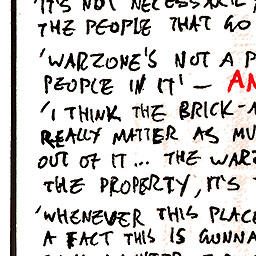 'IT'S NOT NECESSARILY
THE PEOPLE THAT GO
'WARZONE'S NOT A P
PEOPLE IN IT' - AN
'I THINK THE BRICK-A
REALLY MATTER AS MU
OUT OF IT... THE WARZ
THE PROPERTY, IT'S T
'WHENEVER THIS PLAC
A FACT THIS IS GUNNA